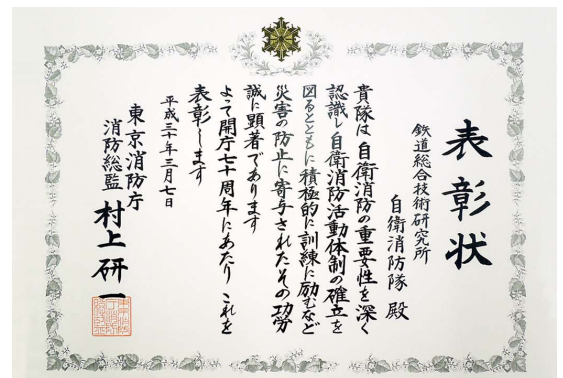 表彰状
鉄道総合技術研究所
自衛消防隊 殿
貴隊は自衛消防の重要性を深く
認識し自衛消防活動体制の確立を
図るとともに積極的に訓練に励むなど
災害の防止に寄与されたその功労
誠に顕著であります
よって開庁七十周年にあたりこれを
表彰します
平成三十年三月七日
東京消防庁
消防総監 村上研一